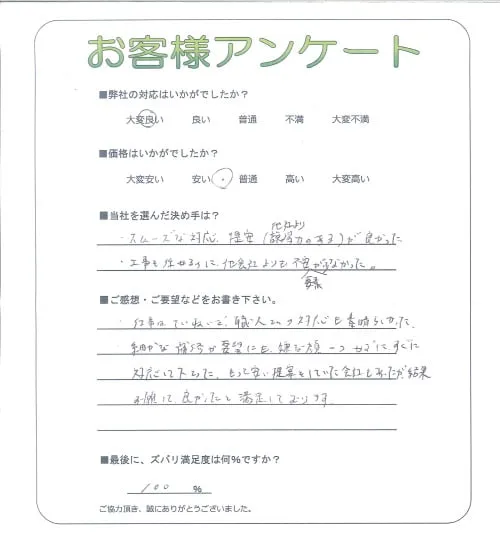 お客様アンケート
■弊社の対応はいかがでしたか？
大変良い 良い 普通 不満 大変不満
■価格はいかがでしたか？
大変安い 安い ・ 普通 高い 大変高い
■当社を選んだ決め手は？
他社より
・スムーズな対応、提案（説得力のある）が良かった
・工事を任せるのに、他会社よりも不安が少なかった。
要素
■ご感想・ご要望などをお書き下さい。
・仕事はていねいで、職人さんの対応も素晴らしかった。
細かな補修や要望にも、嫌な顔一つせずにすぐに
対応して下さった。もっと安い提案をしていた会社もあったが結果
お願いして良かったと満足しております。
■最後に、ズバリ満足度は何％ですか？
100 ％
ご協力頂き、誠にありがとうございました。